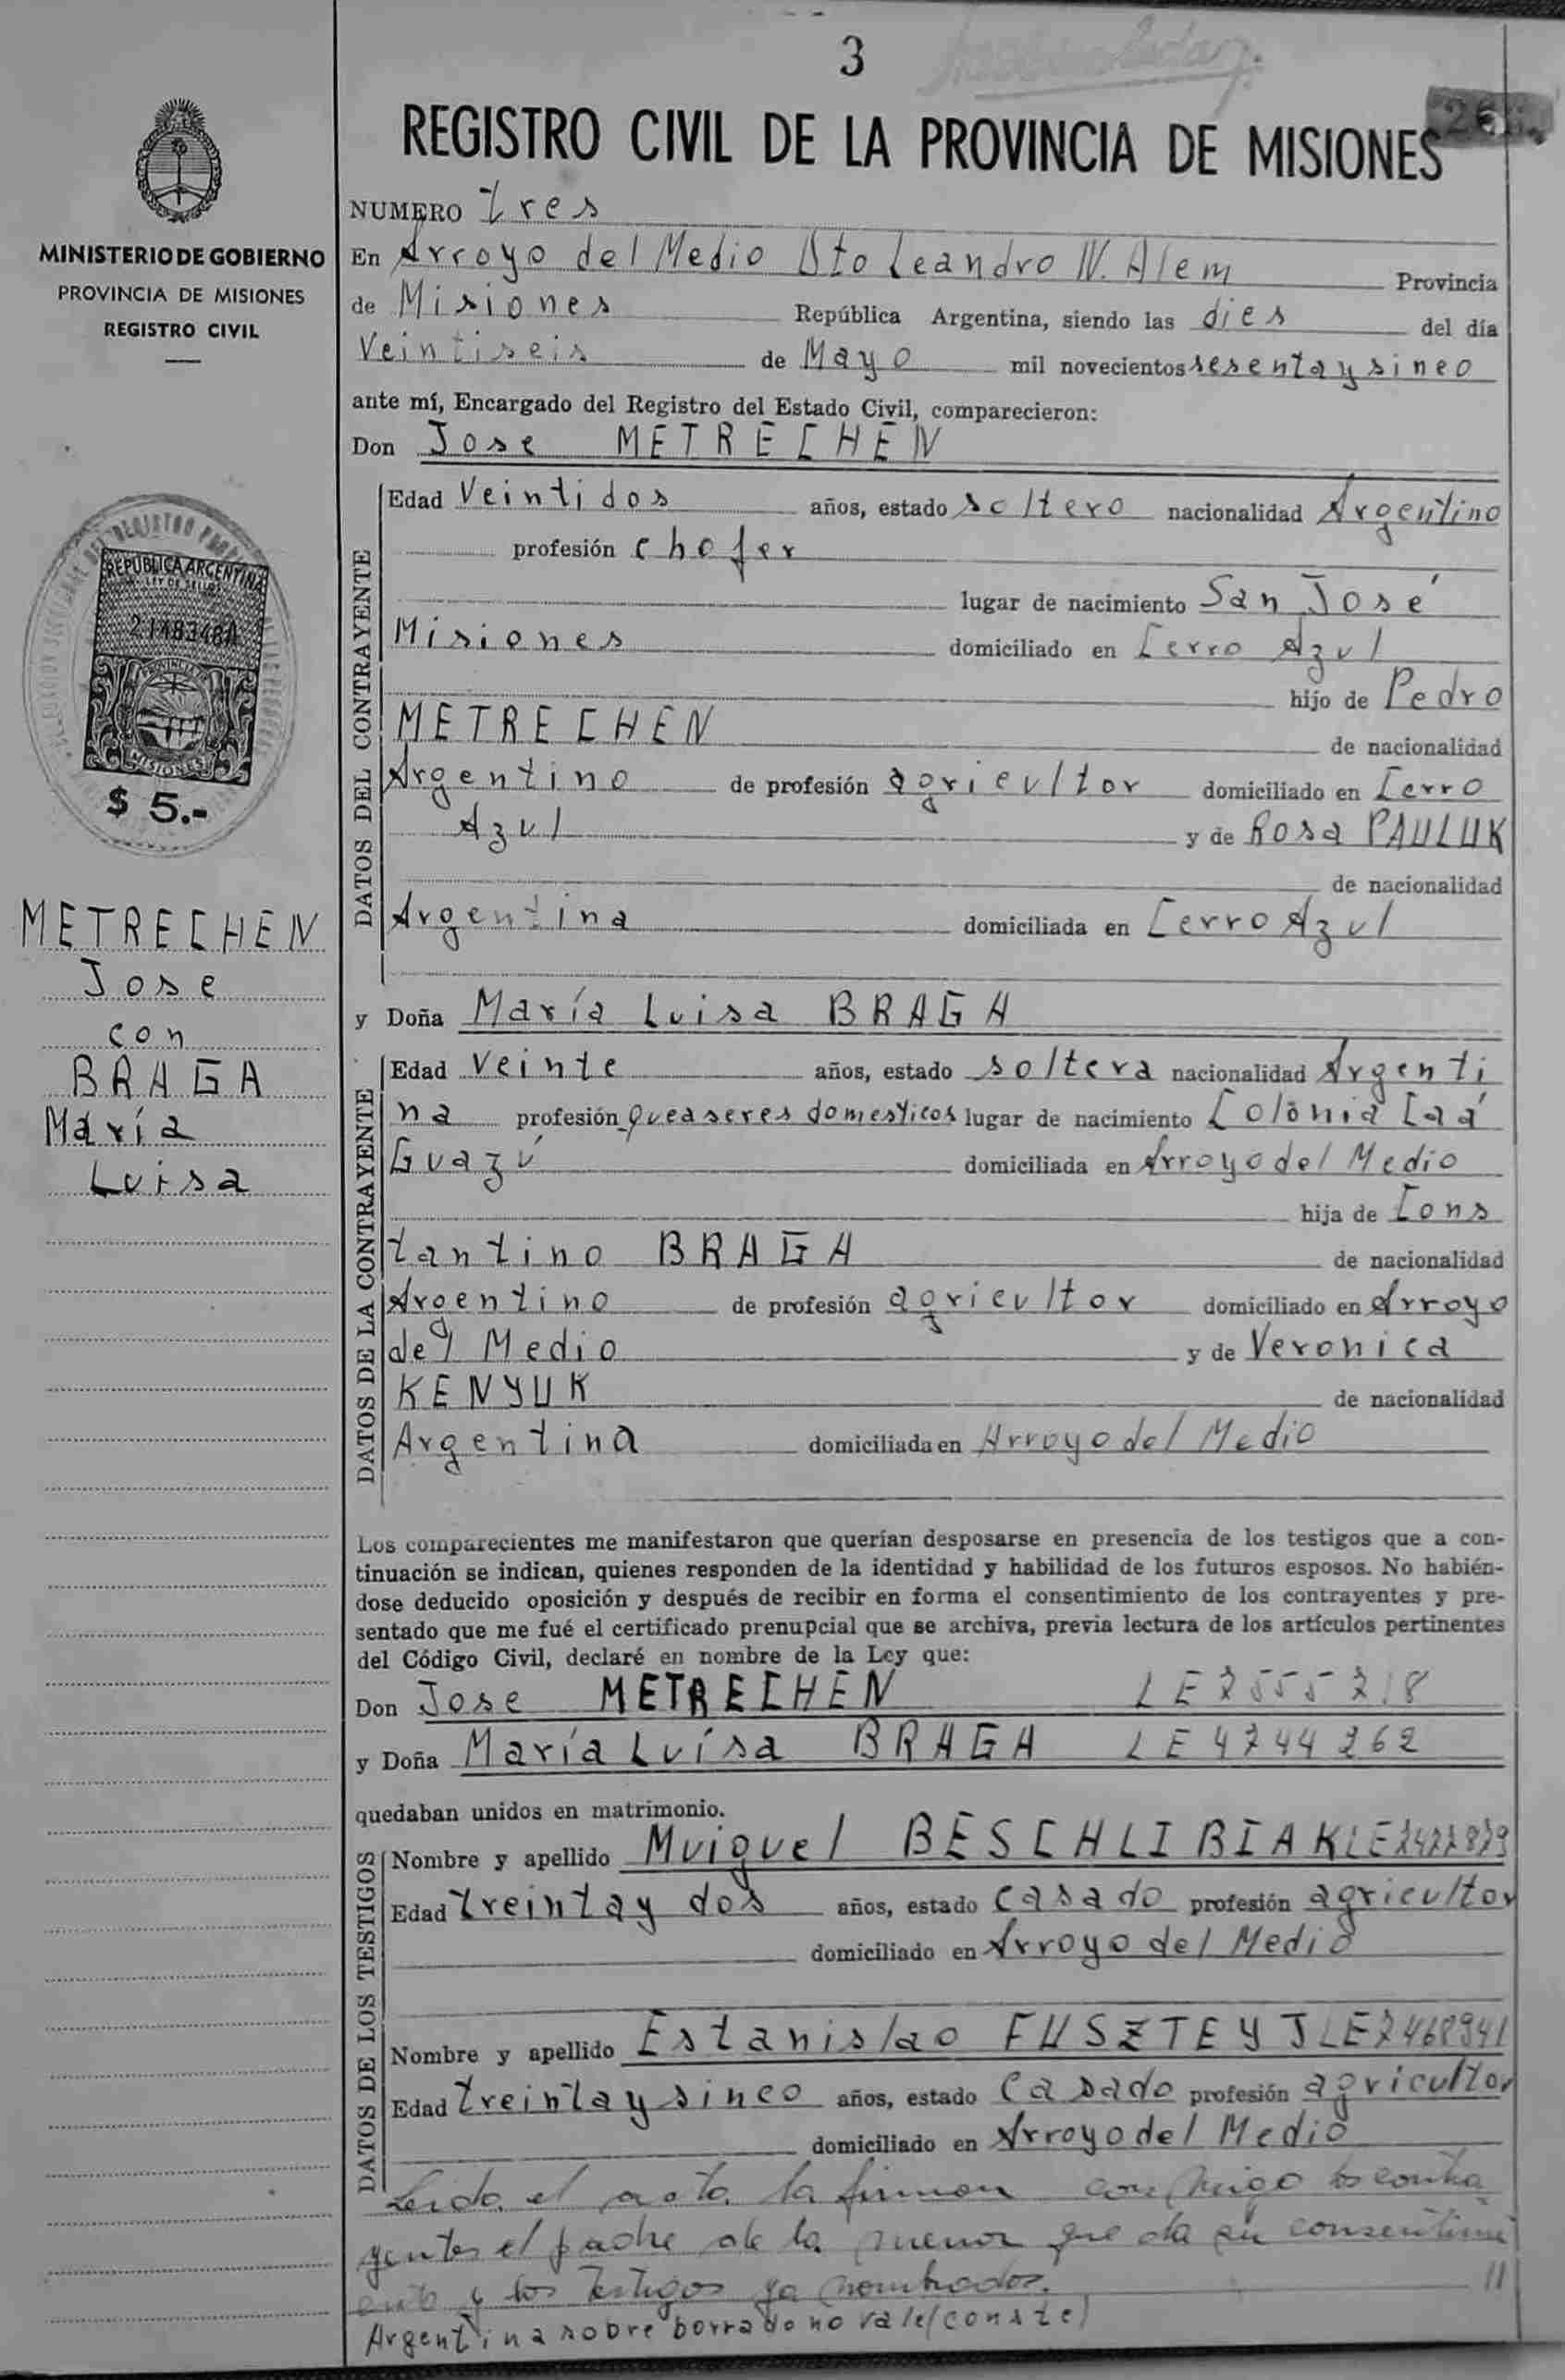 3
REGISTRO CIVIL DE LA PROVINCIA DE MISIONES
MINISTERIO DE GOBIERNO
PROVINCIA DE MISIONES
REGISTRO CIVIL
REPUBLICA ARGENTINA
LEY DE SELLOS
MISIONES
$ 5.-
METRECHEN
Jose
con
BRAGA
María
Luisa
NUMERO tres
En Arroyo del Medio Dto Leandro N. Alem Provincia
de Misiones República Argentina, siendo las dies del día
Veintiseis de Mayo mil novecientos sesenta y sinco
ante mí, Encargado del Registro del Estado Civil, comparecieron:
Don Jose METRECHEN
DATOS DEL CONTRAYENTE
Edad Veintidos años, estado soltero nacionalidad Argentino
profesión chofer
lugar de nacimiento San José
Misiones domiciliado en Cerro Azul
hijo de Pedro
METRECHEN de nacionalidad
Argentino de profesión agricultor domiciliado en Cerro
Azul y de Rosa PAULUK
de nacionalidad
Argentina domiciliada en Cerro Azul
y Doña María Luisa BRAGA
DATOS DE LA CONTRAYENTE
Edad Veinte años, estado soltera nacionalidad Argenti
na profesión queaseres domesticos lugar de nacimiento Colonia Caá
Guazú domiciliada en Arroyo del Medio
hija de Cons
tantino BRAGA de nacionalidad
Argentino de profesión agricultor domiciliado en Arroyo
del Medio y de Veronica
KENYUK de nacionalidad
Argentina domiciliada en Arroyo del Medio
Los comparecientes me manifestaron que querían desposarse en presencia de los testigos que a con-
tinuación se indican, quienes responden de la identidad y habilidad de los futuros esposos. No habién-
dose deducido oposición y después de recibir en forma el consentimiento de los contrayentes y pre-
sentado que me fué el certificado prenupcial que se archiva, previa lectura de los artículos pertinentes
del Código Civil, declaré en nombre de la Ley que:
Don Jose METRECHEN LE 7555718
y Doña María Luísa BRAGA LE 4744262
quedaban unidos en matrimonio.
DATOS DE LOS TESTIGOS
Nombre y apellido Muiguel BESCHLIBIAK LE
Edad treinta y dos años, estado casado profesión agricultor
domiciliado en Arroyo del Medio
Nombre y apellido Estanislao FUSZTEYJ LE 7468941
Edad treinta y sinco años, estado Casado profesión agricultor
domiciliado en Arroyo del Medio
Leida el acta la firman conmigo los contra
yentes el padre de la menor que da su consentimi
ento y los testigos ya nombrados. //
Argentina sobre borrado no vale (conste)